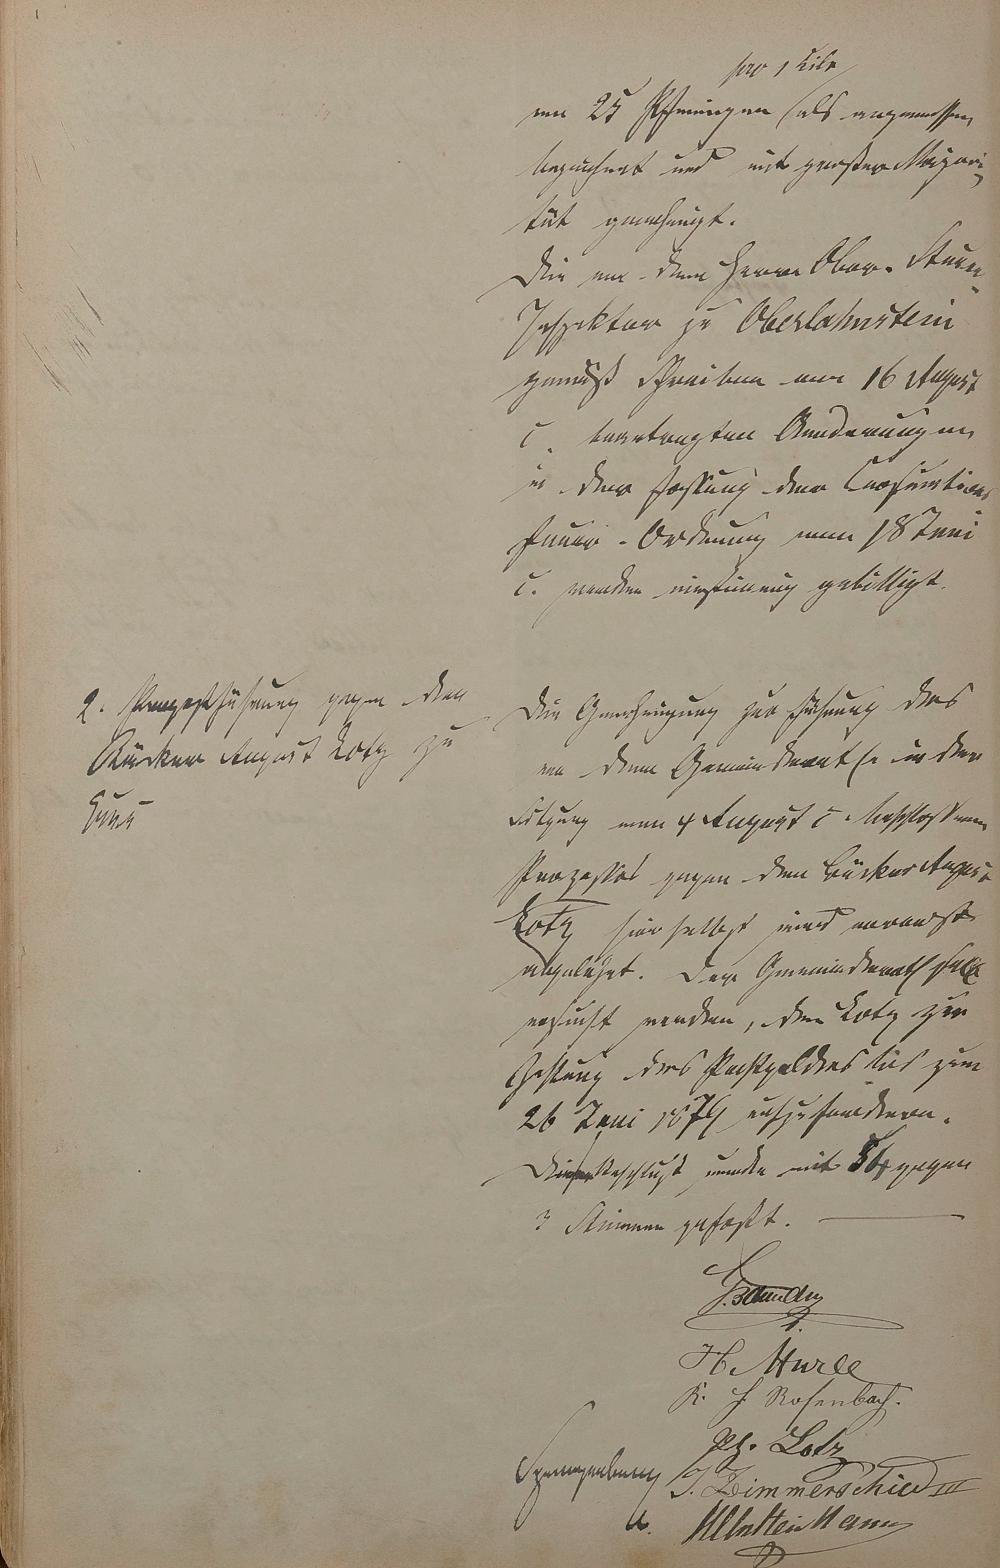 pro 1 Kilo
von 25 Pfennigen als angemessen
bezeichnet und mit großer Majori-
tät genehmigt.
Die von dem Herrn Ober-Steuer-
Inspektor zu Oberlahnstein
gemäß Schreiben vom 16 August
c. beantragten Aenderungen
in der Fassung der Consumtions
steuer-Ordnung vom 18 Juni
c. werden einstimmig gebilligt.
2. Prozeßführung gegen den
Bäcker August Lotz zu
Ems
Die Genehmigung zur Führung des
von dem Gemeinderathe in der
Sitzung vom 4 August c. beschlossenen
Prozesses gegen den Bäcker August
Lotz hierselbst wird vorerst
abgelehnt. Der Gemeinderath soll
ersucht werden, den Lotz zur
Zahlung des Pachtgeldes bis zum
26 Juni 1879 aufzufordern.
Dieser Beschluß wurde mit 54 gegen
3 Stimmen gefaßt.
H.
K. H Rosenbach.
Ph. Lotz
Spangenberg
J. Zimmerschied III